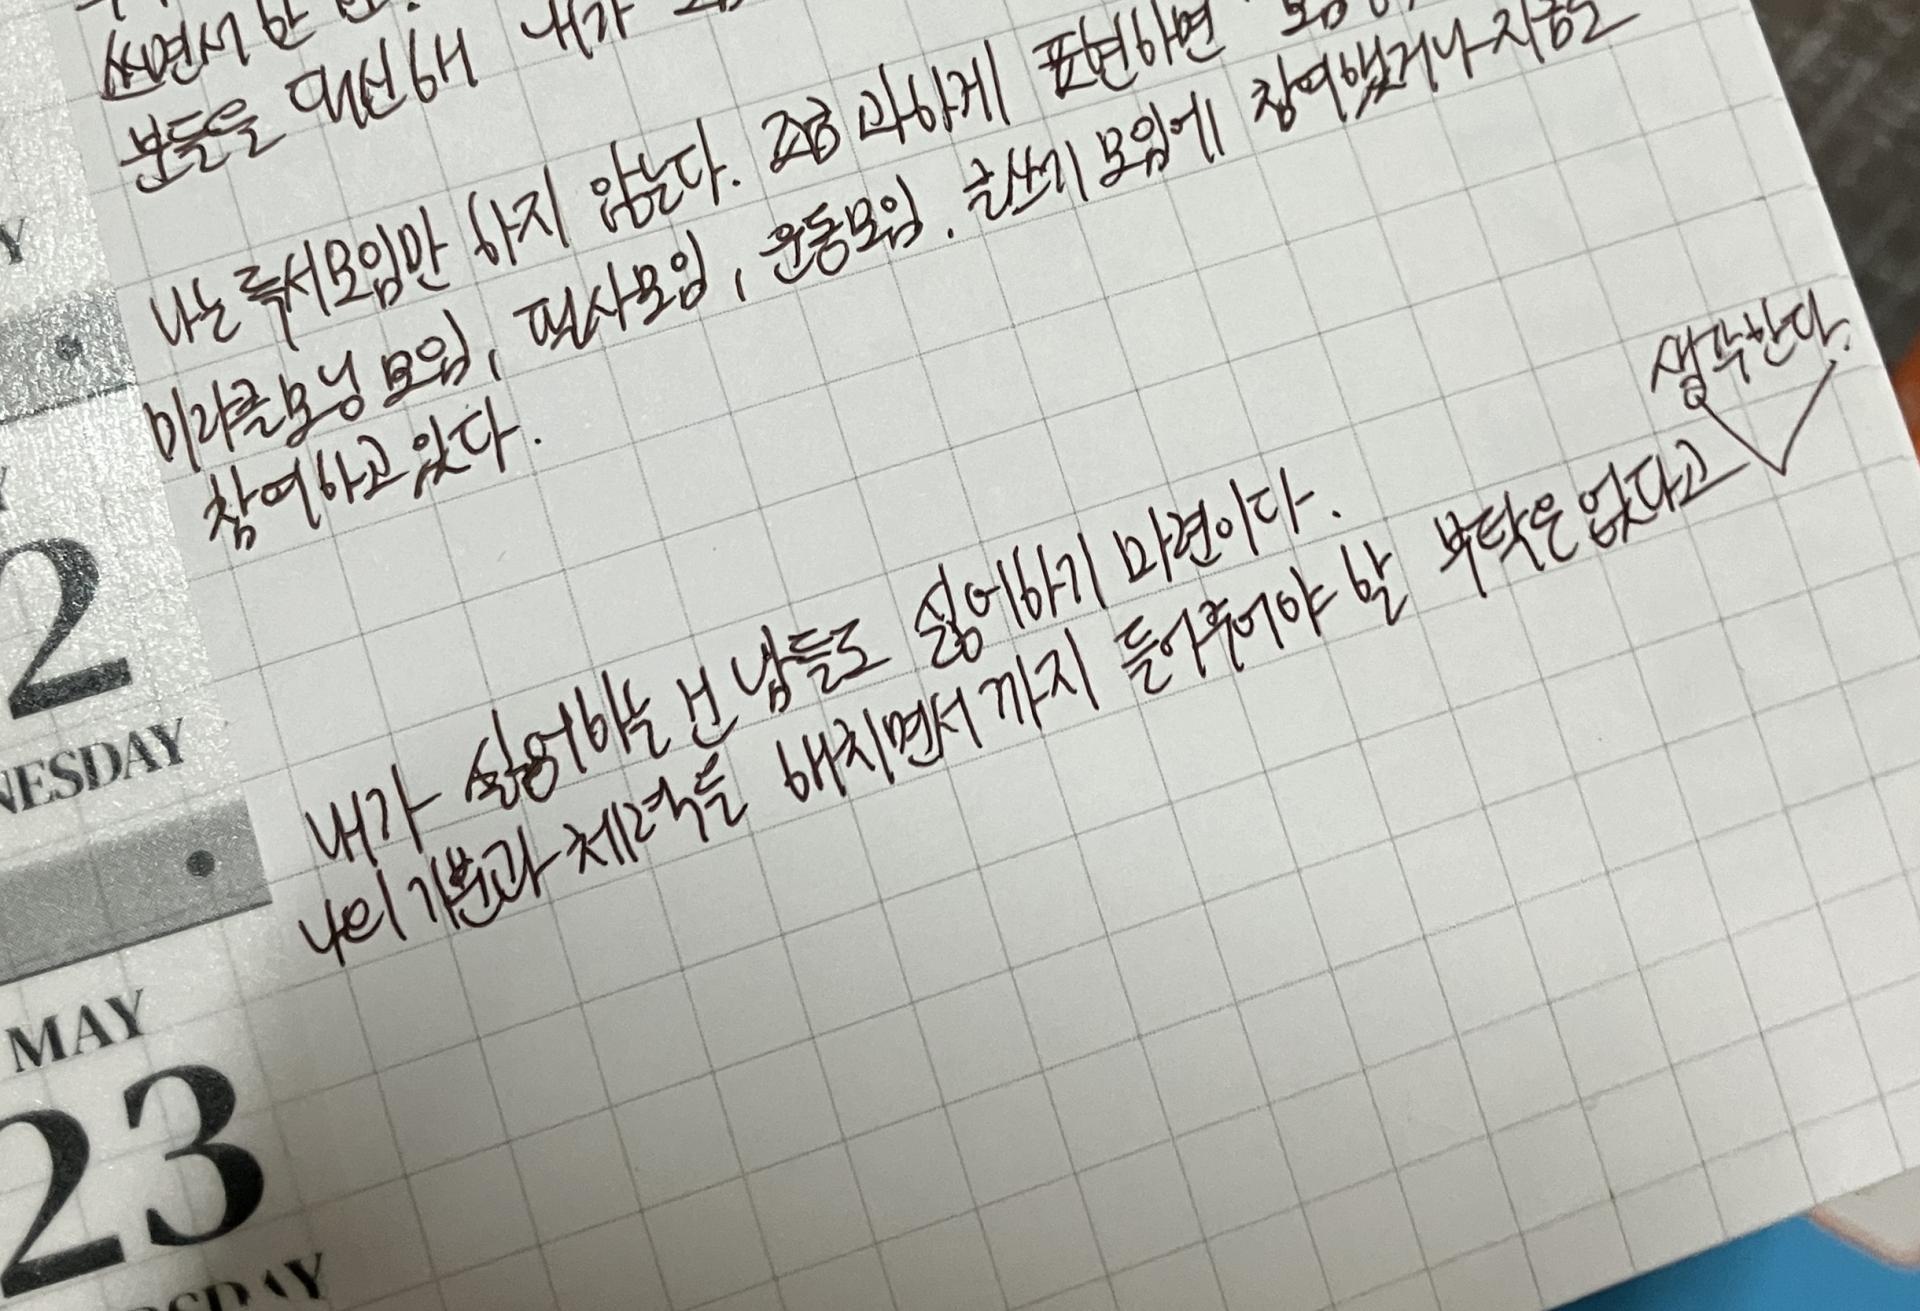 쓰면서 한 번.
분들을 대신해 내가
나는 독서모임만 하지 않는다. 조금 과하게 표현하면
미라클모닝 모임, 필사모임, 운동모임. 글쓰기 모임에 참여했거나 지금도
참여하고 있다.
내가 싫어하는 건 남들도 싫어하기 마련이다.
나의 기분과 체력을 해치면서까지 들어주어야 할 부탁은 없다고 생각한다.
2
NESDAY
MAY
23